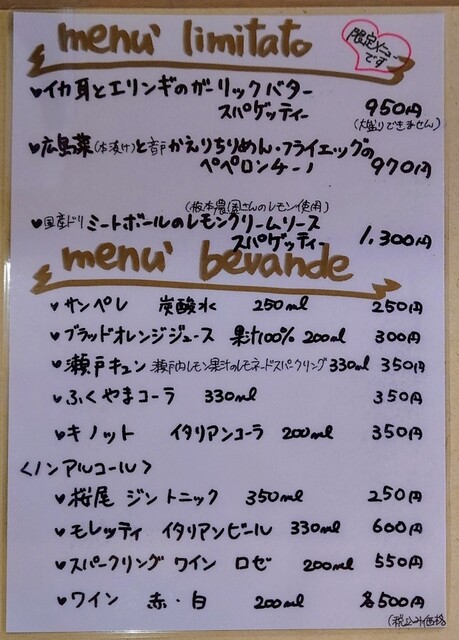 menu' limitato
限定メニューです
♥イカ耳とエリンギのガーリックバター
スパゲッティー 950円
(大盛りできません)
♥広島菜(本漬け)と音戸かえりちりめん・フライエッグの
ペペロンチーノ 970円
(坂本農園さんのレモン使用)
♥国産ドリ ミートボールのレモンクリームソース
スパゲッティー 1,300円
menu' bevande
♥サンペレ 炭酸水 250ml 250円
♥ブラッドオレンジジュース 果汁100% 200ml 300円
♥瀬戸キュン 瀬戸内レモン果汁のレモネードスパークリング 330ml 350円
♥ふくやまコーラ 330ml 350円
♥キノット イタリアンコーラ 200ml 350円
〈ノンアルコール〉
♥桜尾 ジントニック 350ml 250円
♥モレッティ イタリアンビール 330ml 600円
♥スパークリング ワイン ロゼ 200ml 550円
♥ワイン 赤・白 200ml 各500円
(税込み価格